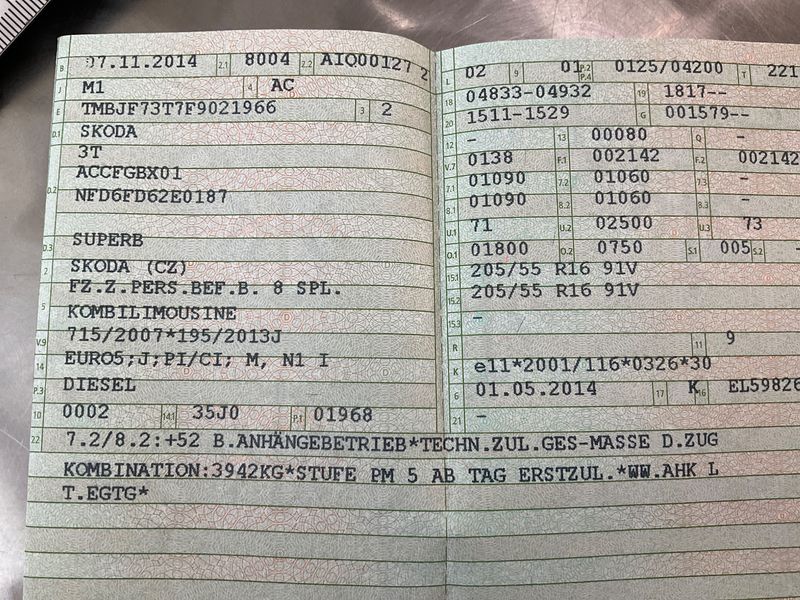 B 07.11.2014 2.1 8004 2.2 AIQ00127 2
J M1 4 AC
E TMBJF73T7F9021966 3 2
D.1 SKODA
3T
D.2 ACCFGBX01
NFD6FD62E0187
D.3 SUPERB
2 SKODA (CZ)
5 FZ.Z.PERS.BEF.B. 8 SPL.
KOMBILIMOUSINE
V.9 715/2007*195/2013J
14 EURO5;J;PI/CI; M, N1 I
P.3 DIESEL
10 0002 14.1 35J0 P.1 01968
L 02 9 01 P.2 P.4 0125/04200 T 221
18 04833-04932 19 1817--
20 1511-1529 G 001579--
12 - 13 00080 Q -
V.7 0138 F.1 002142 F.2 002142
7.1 01090 7.2 01060 7.3 -
8.1 01090 8.2 01060 8.3 -
U.1 71 U.2 02500 U.3 73
O.1 01800 O.2 0750 S.1 005 S.2 -
15.1 205/55 R16 91V
15.2 205/55 R16 91V
15.3 -
R 11 9
K e11*2001/116*0326*30
6 01.05.2014 17 K 16 EL59826
21 -
22 7.2/8.2:+52 B.ANHÄNGEBETRIEB*TECHN.ZUL.GES-MASSE D.ZUG
KOMBINATION:3942KG*STUFE PM 5 AB TAG ERSTZUL.*WW.AHK L
T.EGTG*